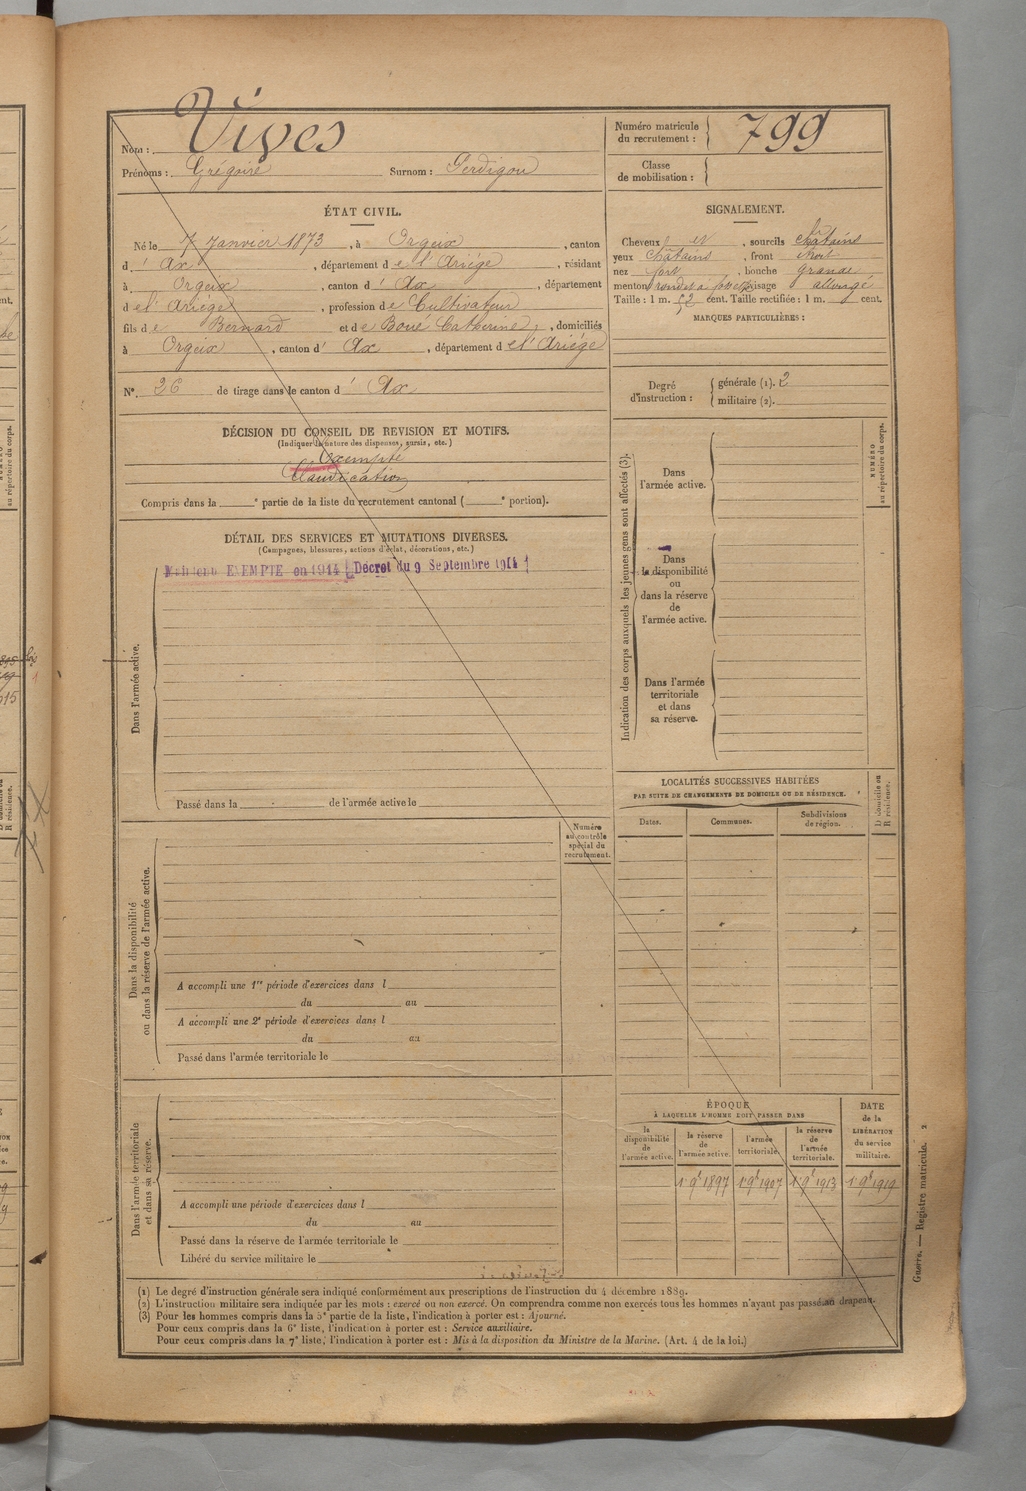 Nom : Vives
Prénoms : Grégoire Surnom : Perdigou
Numéro matricule
du recrutement : 799
Classe
de mobilisation :
ÉTAT CIVIL.
Né le 7 Janvier 1873, à Orgeix, canton
d' Ax, département de l'Ariège, résidant
à Orgeix, canton d' Ax, département
de l'Ariège, profession de Cultivateur
fils de Bernard et de Boué Catherine, domiciliés
à Orgeix, canton d' Ax, département de l'Ariège
N° 26 de tirage dans le canton d' Ax
SIGNALEMENT.
Cheveux et, sourcils châtains
yeux châtains, front étroit
nez fort, bouche grande
menton rond et à fossette, visage allongé
Taille : 1 m. 52 cent. Taille rectifiée : 1 m. cent.
MARQUES PARTICULIÈRES :
Degré
d'instruction :
générale (1). 2
militaire (2).
DÉCISION DU CONSEIL DE REVISION ET MOTIFS.
(Indiquer la nature des dispenses, sursis, etc.)
Exempté
Claudication
Compris dans la e partie de la liste du recrutement cantonal ( e portion).
DÉTAIL DES SERVICES ET MUTATIONS DIVERSES.
(Campagnes, blessures, actions d'éclat, décorations, etc.)
Maintenu EXEMPTÉ en 1914 (Décret du 9 Septembre 1914)
Dans l'armée active.
Passé dans la de l'armée active le
Indication des corps auxquels les jeunes gens sont affectés (3).
Dans
l'armée active.
Dans
la disponibilité
ou
dans la réserve
de
l'armée active.
Dans l'armée
territoriale
et dans
sa réserve.
NUMÉRO
au répertoire du corps.
LOCALITÉS SUCCESSIVES HABITÉES
PAR SUITE DE CHANGEMENTS DE DOMICILE OU DE RÉSIDENCE.
Dates.
Communes.
Subdivisions
de région.
D domicile ou
R résidence.
Numéro
au contrôle
spécial du
recrutement.
Dans la disponibilité
ou dans la réserve de l'armée active.
A accompli une 1re période d'exercices dans l
du au
A accompli une 2e période d'exercices dans l
du au
Passé dans l'armée territoriale le
Dans l'armée territoriale
et dans sa réserve.
A accompli une période d'exercices dans l
du au
Passé dans la réserve de l'armée territoriale le
Libéré du service militaire le
ÉPOQUE
À LAQUELLE L'HOMME DOIT PASSER DANS
la
disponibilité
de
l'armée active.
la réserve
de
l'armée active.
l'armée
territoriale.
la réserve
de
l'armée
territoriale.
DATE
de la
LIBÉRATION
du service
militaire.
1 9bre 1897 1 9bre 1907 1 9bre 1913 1 9bre 1919
(1) Le degré d'instruction générale sera indiqué conformément aux prescriptions de l'instruction du 4 décembre 1889.
(2) L'instruction militaire sera indiquée par les mots : exercé ou non exercé. On comprendra comme non exercés tous les hommes n'ayant pas passé au drapeau.
(3) Pour les hommes compris dans la 5e partie de la liste, l'indication à porter est : Ajourné.
Pour ceux compris dans la 6e liste, l'indication à porter est : Service auxiliaire.
Pour ceux compris dans la 7e liste, l'indication à porter est : Mis à la disposition du Ministre de la Marine. (Art. 4 de la loi.)
Guerre. — Registre matricule. 2